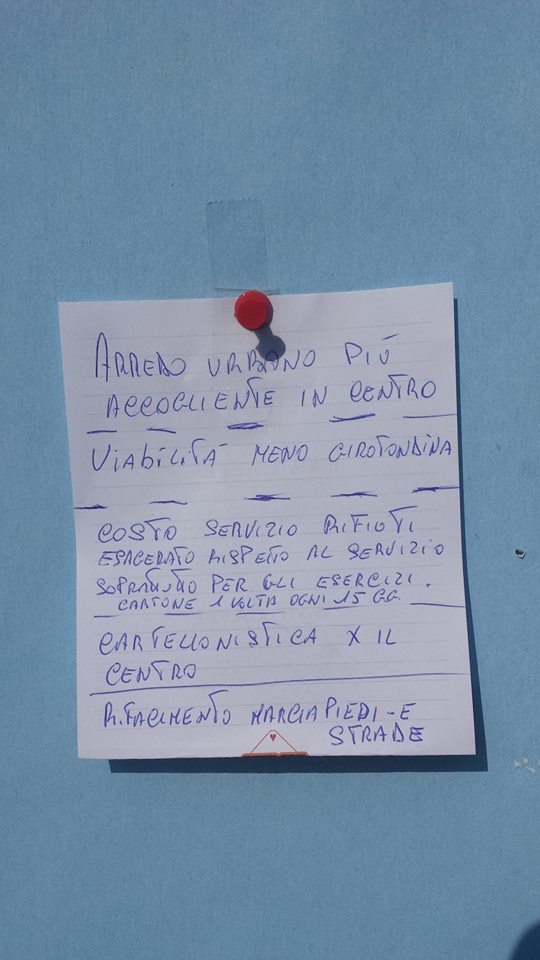 ARREDO URBANO PIÚ
ACCOGLIENTE IN CENTRO
VIABILITÀ MENO GIROTONDINA
COSTO SERVIZIO RIFIUTI
ESAGERATO RISPETTO AL SERVIZIO
SOPRATUTTO PER GLI ESERCIZI.
CARTONE 1 VOLTA OGNI 15 GG
CARTELLONISTICA X IL
CENTRO
RIFACIMENTO MARCIAPIEDI-E
STRADE